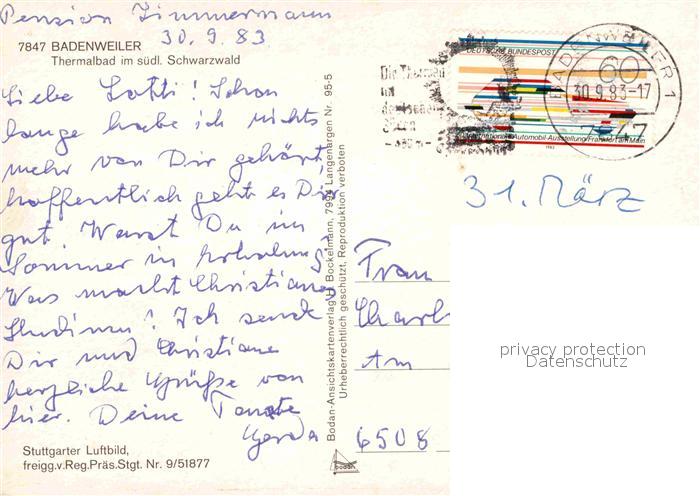 Pension Zimmermann
30.9.83
7847 BADENWEILER
Thermalbad im südl. Schwarzwald
Liebe Lotti! Schon
lange habe ich nichts
mehr von Dir gehört,
hoffentlich geht es Dir
gut. Warst Du im
Sommer in Erholung?
Was macht Christiane
Studium? Ich sende
Dir und Christiane
herzliche Grüße von
hier. Deine Tante
Gerda
Stuttgarter Luftbild,
freigg.v.Reg.Präs.Stgt. Nr. 9/51877
Bodan-Ansichtskartenverlag H. Bockelmann, 7994 Langenargen Nr. 95-5
Urheberrechtlich geschützt, Reproduktion verboten
bodan
DEUTSCHE BUNDESPOST
60
Internationale Automobil-Ausstellung Frankfurt am Main
1983
BADENWEILER 1
30.9.83-17
7847
31. März
Frau
Charl
Am
6508
privacy protection
Datenschutz